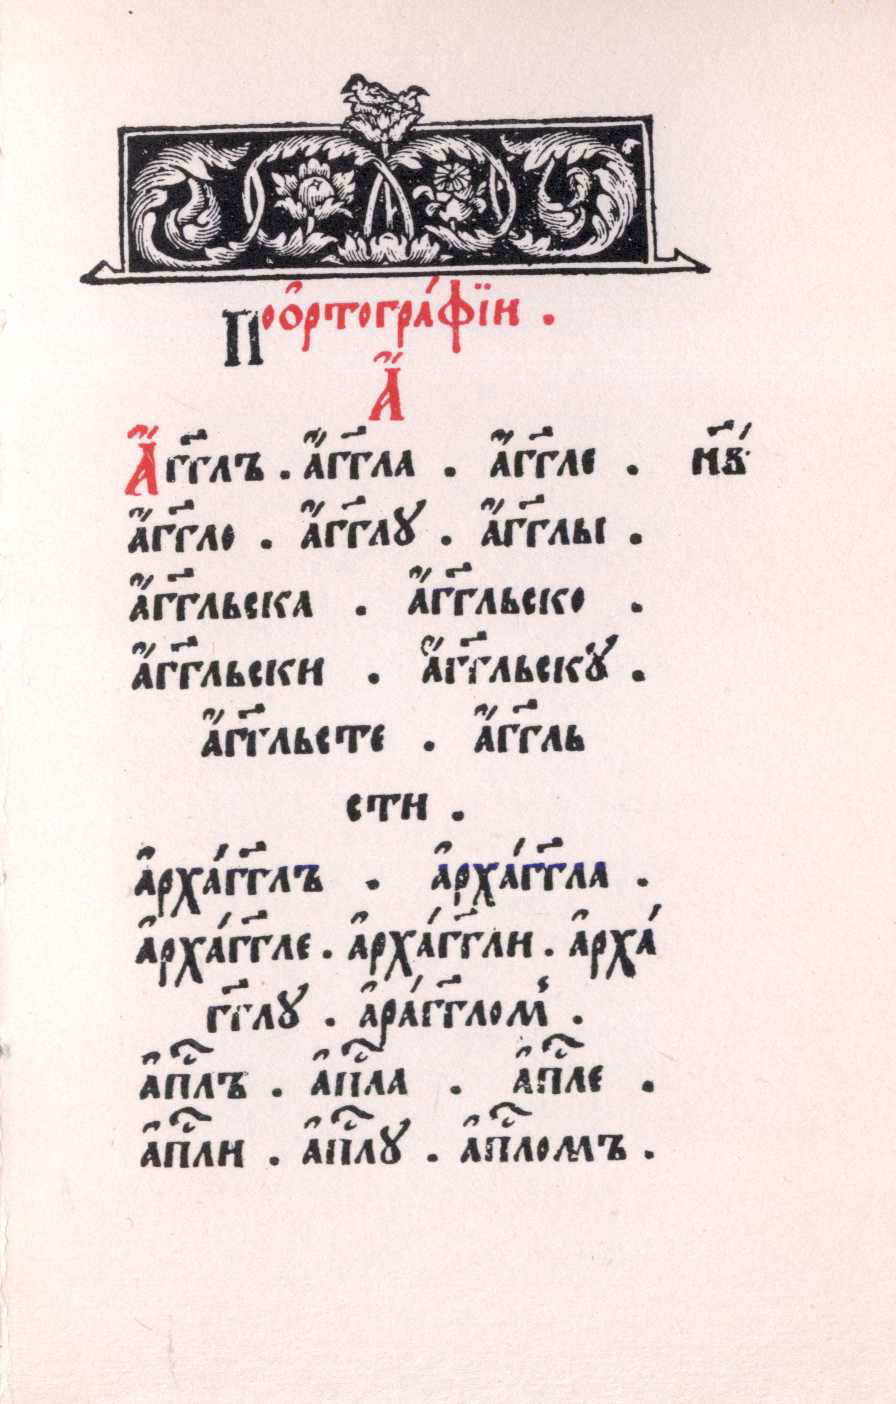 По ѻ҆ртогра́фїи .
А҆́
А҆́гг҃лъ . а҆́гг҃ла . а҆́гг҃ле .
а҆́гг҃ло . а҆́гг҃лꙋ . а҆́гг҃лы .
а҆́гг҃льска . а҆́гг҃льско .
а҆́гг҃льски . а҆́гг҃льскꙋ .
а҆́гг҃льсте . а҆́гг҃ль
сти .
а҆рха́гг҃лъ . а҆рха́гг҃ла .
а҆рха́гг҃ле . а҆рха́гг҃ли . а҆рха́
гг҃лꙋ . а҆ра́гг҃лом̾ .
а҆пⷭ҇лъ . а҆пⷭ҇ла . а҆пⷭ҇ле .
а҆пⷭ҇ли . а҆пⷭ҇лꙋ . а҆пⷭ҇ломъ .